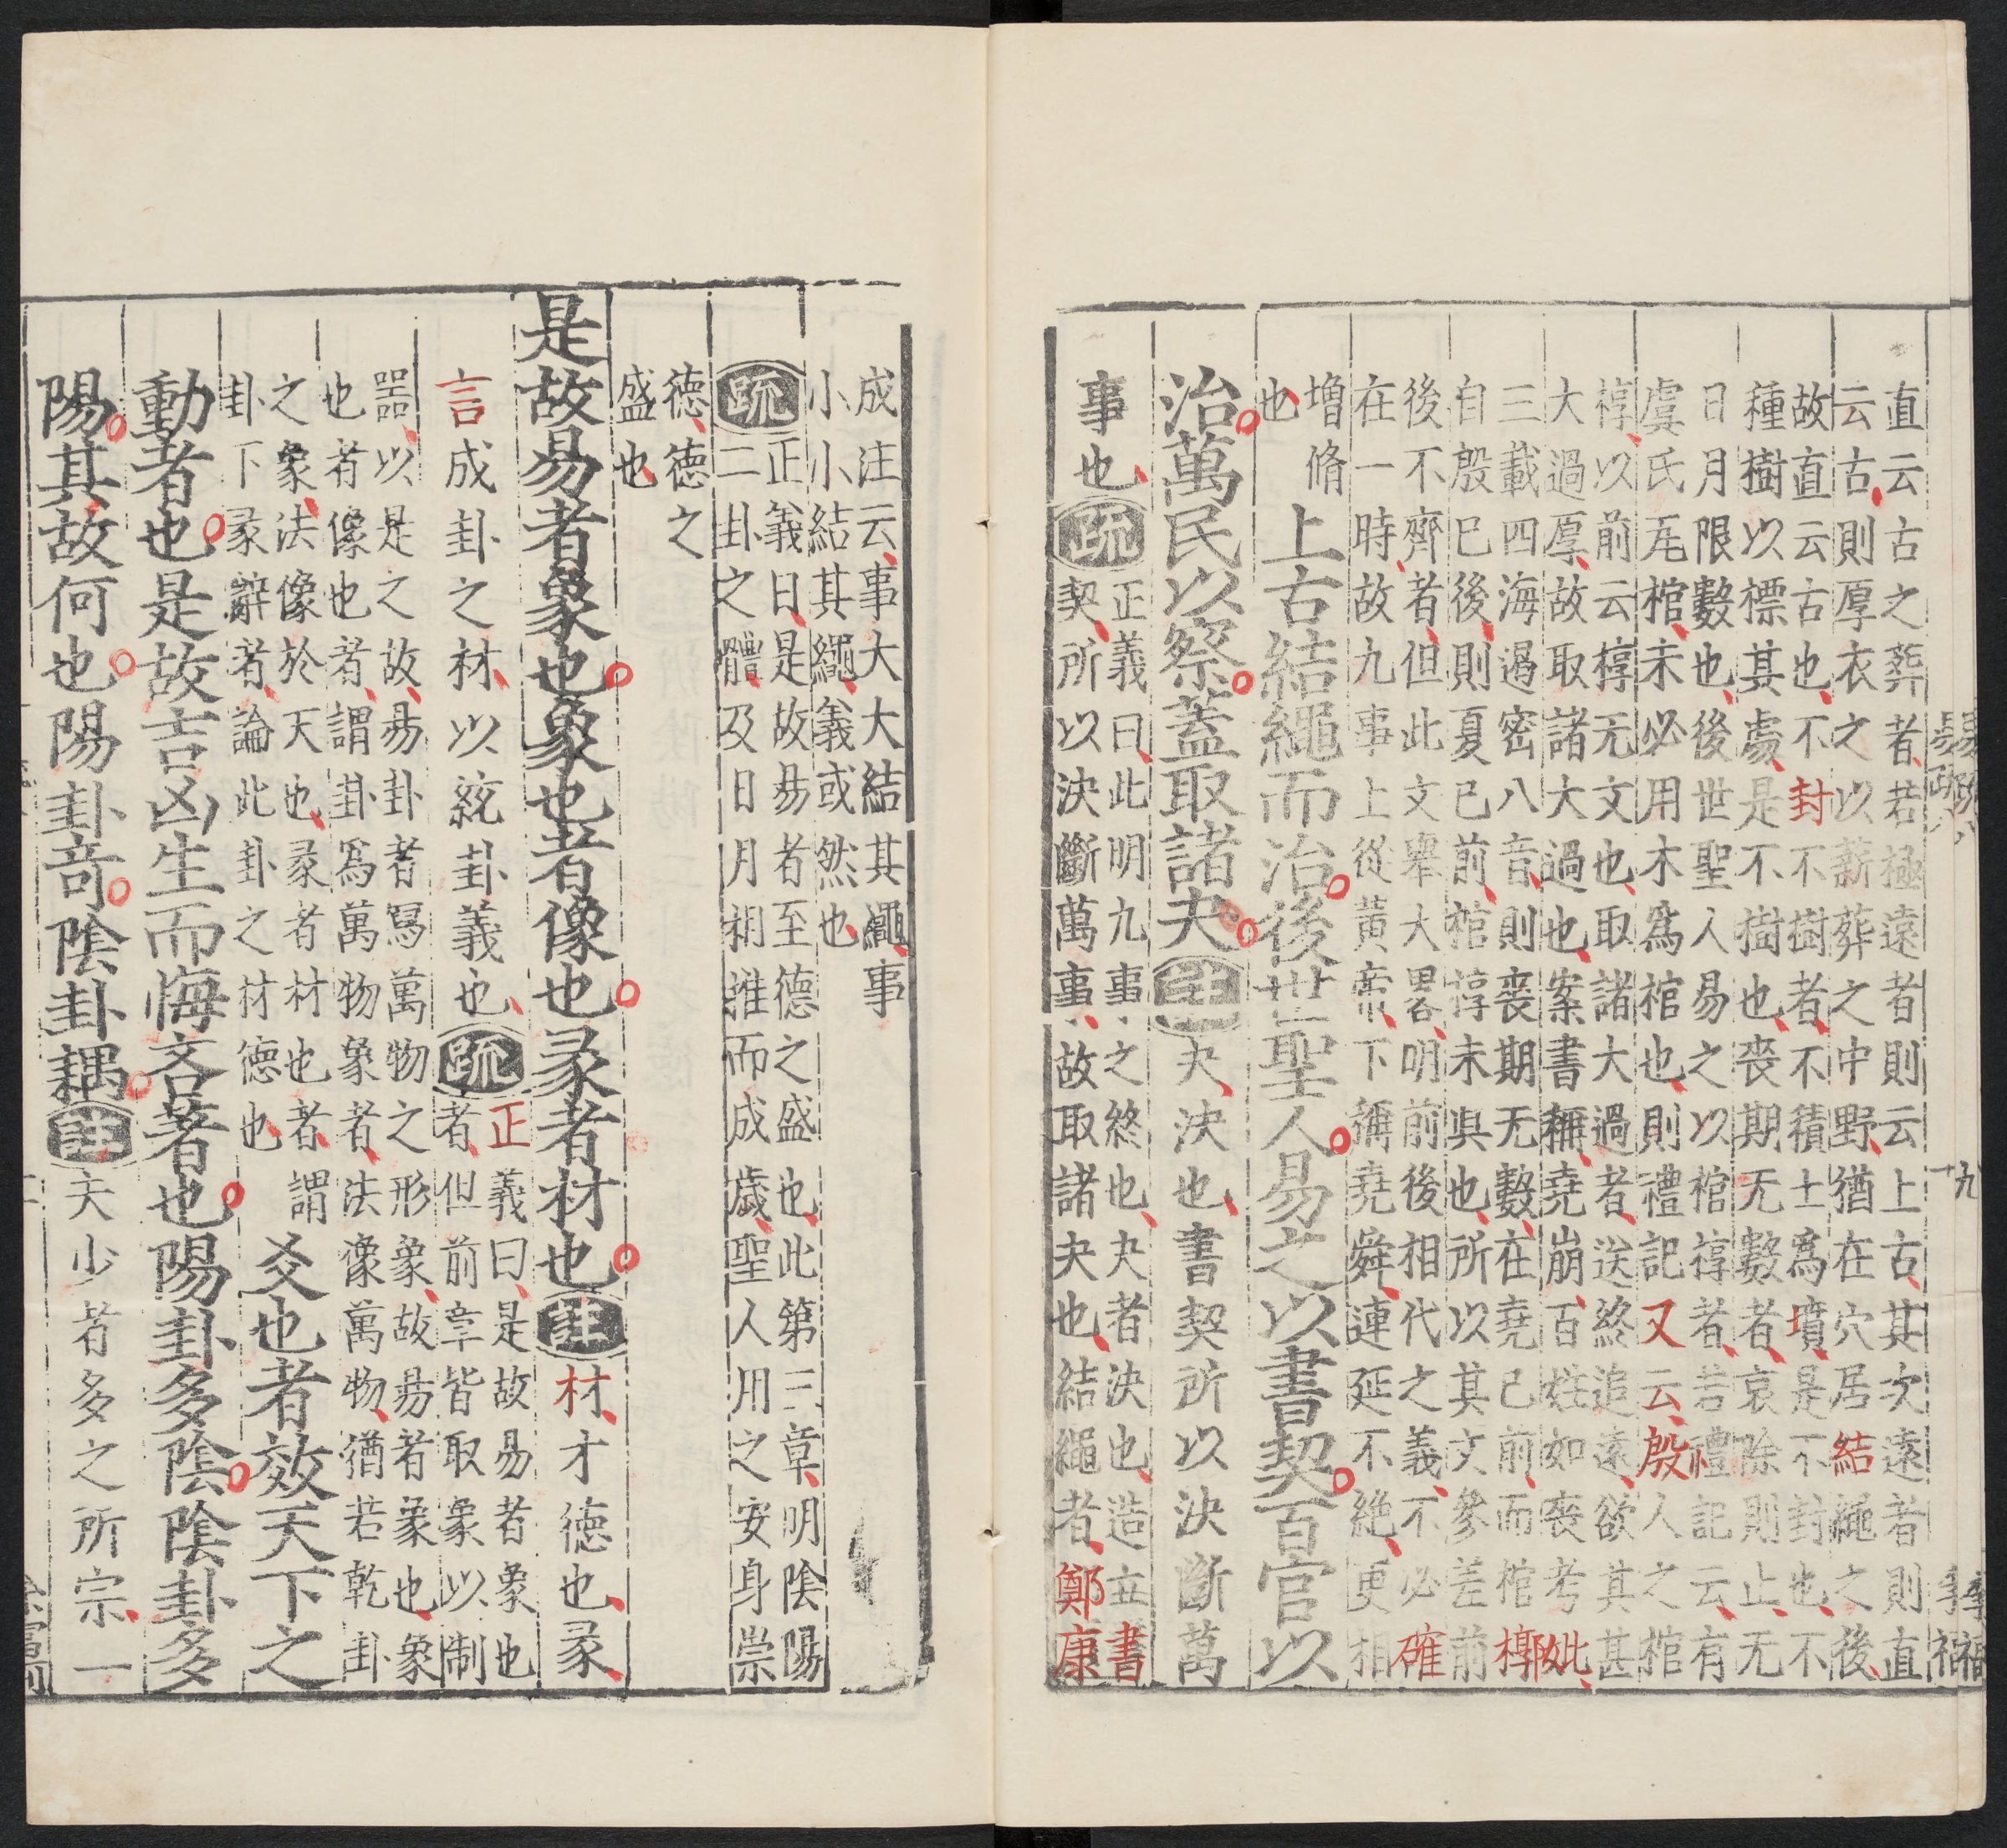 直云古之葬者若極遠者則云上古其次遠者則直
云古則厚衣之以薪葬之中野猶在穴居結繩之後
故直云古也不封不樹者不積土爲墳是不封也不
種樹以標其處是不樹也喪期无數者哀除則止无
日月限數也後世聖人易之以棺椁者若禮記云有
虞氏瓦棺未必用木爲棺也則禮記又云殷人之棺
椁以前云椁无文也取諸大過者送終追遠欲其甚
大過厚故取諸大過也案書稱堯崩百姓如喪考妣
三載四海遏密八音則喪期无數在堯已前而棺槨
自殷已後則夏已前棺椁未具也所以其文參差前
後不齊者但此文舉大畧明前後相代之義不必確
在一時故九事上從黃帝下稱堯舜連延不絕更相
增脩
也
上古結繩而治後世聖人易之以書契百官以
治萬民以察蓋取諸夬註夬決也書契所以決斷萬
事也疏正義曰此明九事之終也夬者決也造立書
契所以決斷萬事故取諸夬也結繩者鄭康
成注云事大大結其繩事
小小結其繩義或然也
疏正義曰是故易者至德之盛也此第三章明陰陽
二卦之體及日月相推而成歲聖人用之安身崇
德德之
盛也
是故易者象也象也者像也彖者材也註材才德也彖
言成卦之材以統卦義也疏正義曰是故易者象也
者但前章皆取象以制
器以是之故易卦者寫萬物之形象故易者象也象
也者像也者謂卦爲萬物象者法像萬物猶若乾卦
之象法像於天也彖者材也者謂
卦下彖辭者論此卦之材德也
爻也者效天下之
動者也是故吉凶生而悔吝著也陽卦多陰陰卦多
陽其故何也陽卦奇陰卦耦註夫少者多之所宗一